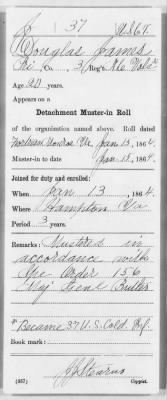 D 37 U.S.C.T.
Douglas James
Pri Co. 3 Reg't No. Ca. Vols.
Age 20 years.
Appears on a
Detachment Muster-in Roll
of the organization named above. Roll dated
Fortress Monroe Va Jan 13, 1864.
Muster-in to date Jan 13, 1864.
Joined for duty and enrolled:
When Jan 13, 1864.
Where Hampton Va
Period 3 years.
Remarks: Mustered in
accordance with
Spe Order 156
Maj Genl Butler
* Became 37 U.S. Cold. Inf.
Book mark:
(357) Copyist.